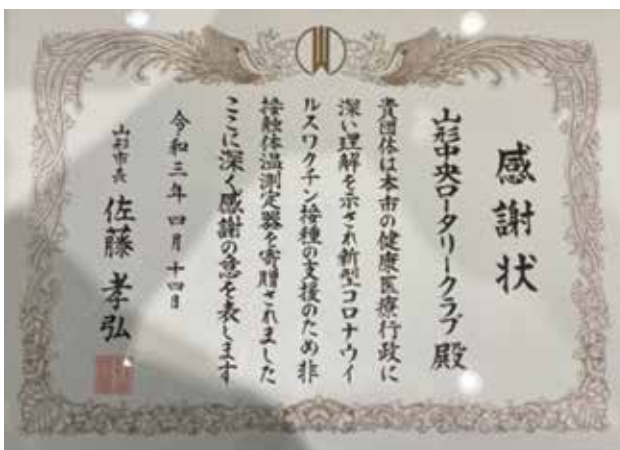 感謝状
山形中央ロータリークラブ殿
貴団体は本市の健康医療行政に
深い理解を示され新型コロナウイ
ルスワクチン接種の支援のため非
接触体温測定器を寄贈されました
ここに深く感謝の意を表します
令和三年四月十四日
山形市長 佐藤孝弘